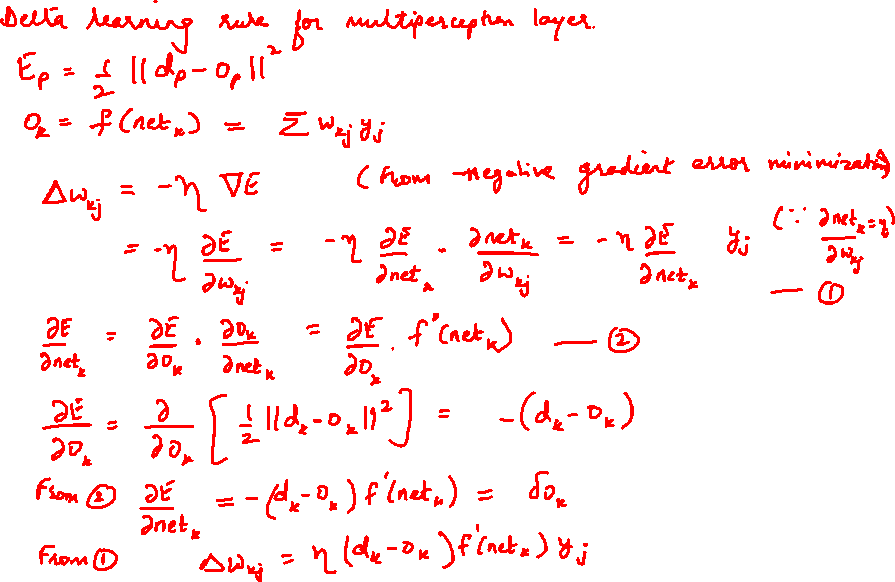 Delta learning rule for multiperceptron layer.
E_p = 1/2 ||d_p - o_p||^2
o_k = f(net_k) = Σ w_kj y_j
Δw_kj = -η ∇E (from -negative gradient error minimization)
= -η ∂E/∂w_kj = -η ∂E/∂net_k · ∂net_k/∂w_kj = -η ∂E/∂net_k y_j (∵ ∂net_k/∂w_kj = y_j) — ①
∂E/∂net_k = ∂E/∂o_k · ∂o_k/∂net_k = ∂E/∂o_k · f'(net_k) — ②
∂E/∂o_k = ∂/∂o_k [1/2 ||d_k - o_k||^2] = -(d_k - o_k)
From ② ∂E/∂net_k = -(d_k - o_k) f'(net_k) = δo_k
From ① Δw_kj = η (d_k - o_k) f'(net_k) y_j